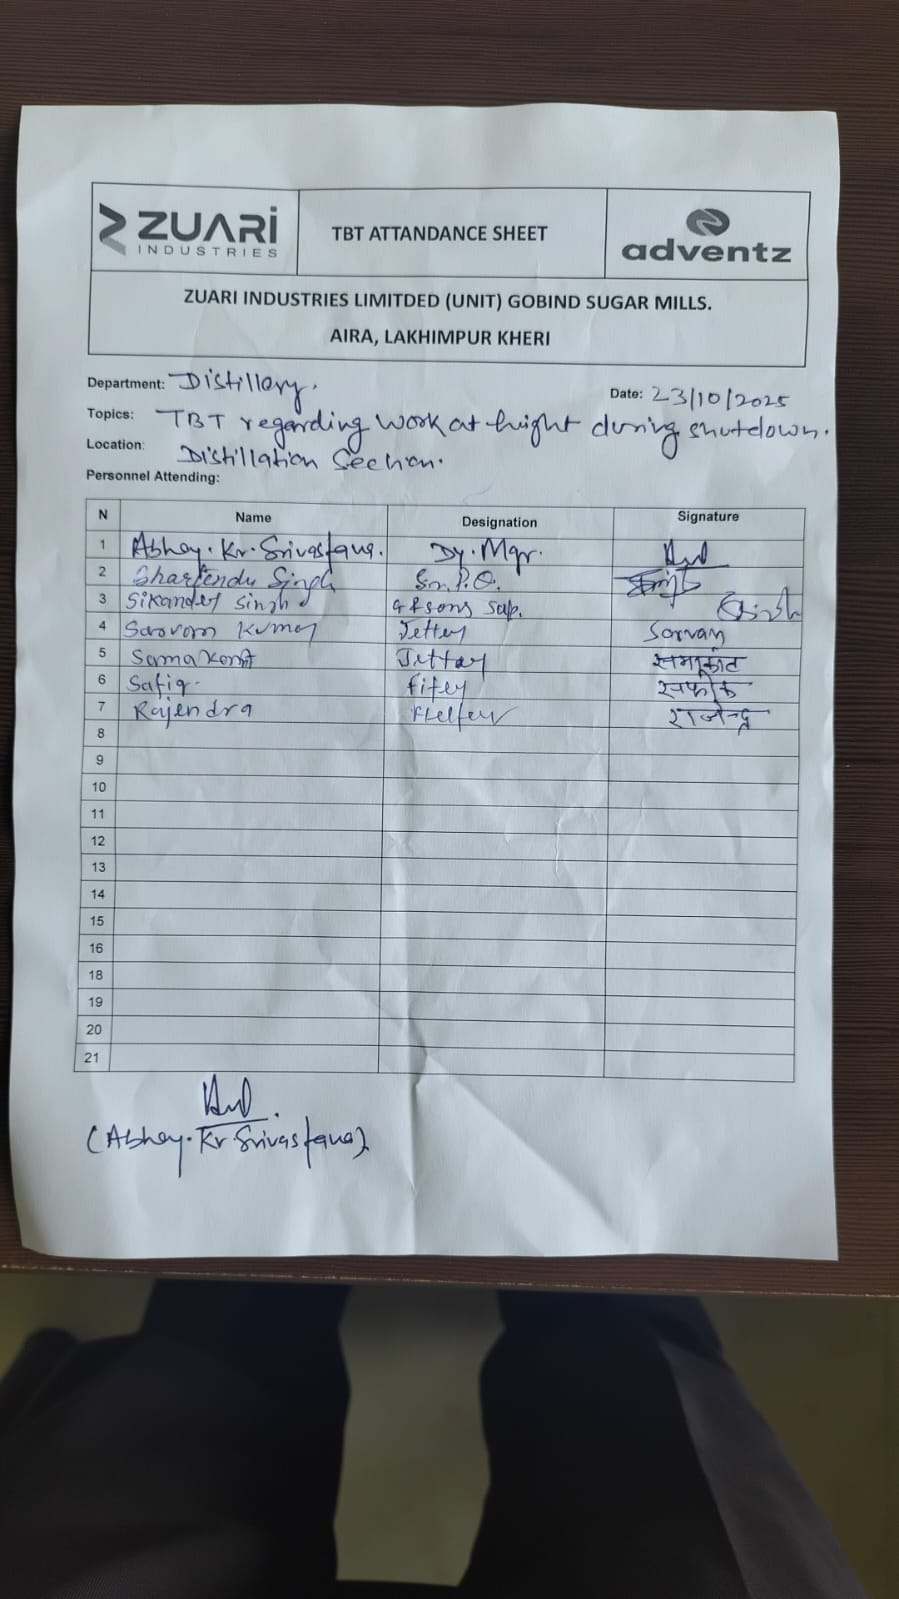 ZUARI
INDUSTRIES
TBT ATTANDANCE SHEET
adventz
ZUARI INDUSTRIES LIMITDED (UNIT) GOBIND SUGAR MILLS.
AIRA, LAKHIMPUR KHERI
Department: Distillery.
Date: 23/10/2025
Topics: TBT regarding work at hight during shutdown.
Location: Distillation Section.
Personnel Attending:
N Name Designation Signature
1 Abhay. Kr. Srivastava. Dy. Mgr.
2 Singh
3 Sikander Singh
4 Kumar Sarvan
5 समाकांत
6 Safiq. सफीक
7 Rajendra Helfer राजेन्द्र
8
9
10
11
12
13
14
15
16
18
19
20
21
(Abhay. Kr Srivastava)